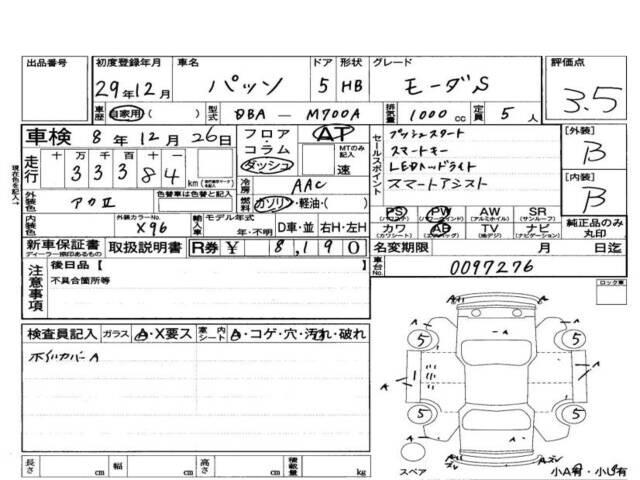 出品番号 初度登録年月 車名 ドア 形状 グレード 評価点
29年12月 パッソ 5 HB モーダS 3.5
車歴 自家用 ( ) 型式 DBA — M700A 排気量 1000 cc 定員 5 人
車検 8 年 12 月 26 日 フロア・コラム・ダッシュ AT MTのみ記入 速
現在色を記入
走行 十 万 千 百 十 一
3 3 3 8 4 km
冷房 AAC
外装色 アカII 色替車は色替と記入 燃料 ガソリン・軽油・( )
内装色 外装カラーNo. X96 輸入車 モデル年式 年・不明 D車・並 右H・左H
新車保証書 ディーラー捺印あるもの 取扱説明書 R券 ¥ 8,190
セールスポイント
プッシュスタート
スマートキー
LEDヘッドライト
スマートアシスト
[外装] B
[内装] B
PS PW AW (アルミホイル) SR (サンルーフ)
カワ (カワシート) AB (エアバッグ) TV ナビ (ナビゲーション)
純正品のみ丸印
名変期限 月 日迄
車台No. 0097276
注意事項
後日品【 】
不具合箇所等
ロック車
検査員記入 ガラス A・X要ス 車内シート A・コゲ・穴・汚れ・破れ
ホイルカバーA
A A
5 5
A 1 A
5 5
A A
スペア 小A有・小U有
長さ cm 幅 cm 高さ cm 積載量 kg